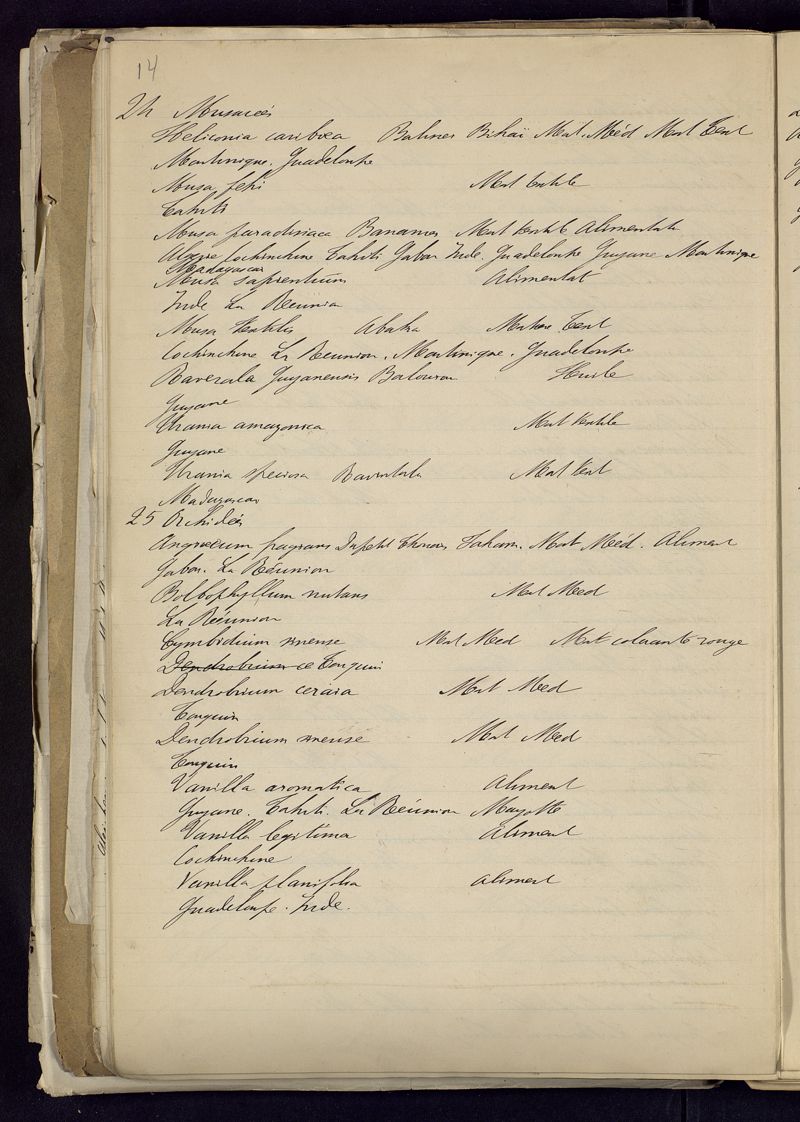 14
24 Musacées
Heliconia caribœa Balisier Bihaï Mat. Méd Mat Text
Martinique. Guadeloupe
Musa fehi Mat textile
Tahiti
Musa paradisiaca Bananier Mat textile Alimentat
Algérie Cochinchine Tahiti Gabon Inde. Guadeloupe Guyane Martinique
Madagascar
Musa sapientium Alimentat
Inde La Réunion
Musa textilis Abaka Matière Text
Cochinchine La Réunion. Martinique. Guadeloupe
Ravenala Guyanensis Balourou Huile
Guyane
Urania amazonica Mat textile
Guyane
Urania speciosa Ravintsala Mat text
Madagascar
25 Orchidées
Angræcum fragrans Dupetit Thouars Faham. Mat Méd. Aliment
Gabon. La Réunion
Bolbophyllum nutans Mat Med
La Réunion
Cymbidium sinense Mat Med Mat colorante rouge
Dendrobium ce Tonquin
Dendrobium ceraia Mat Med
Tonquin
Dendrobium sinense Mat Med
Tonquin
Vanilla aromatica Aliment
Guyane. Tahiti. La Réunion Mayotte
Vanilla legitima Aliment
Cochinchine
Vanilla planifolia Aliment
Guadeloupe. Inde.